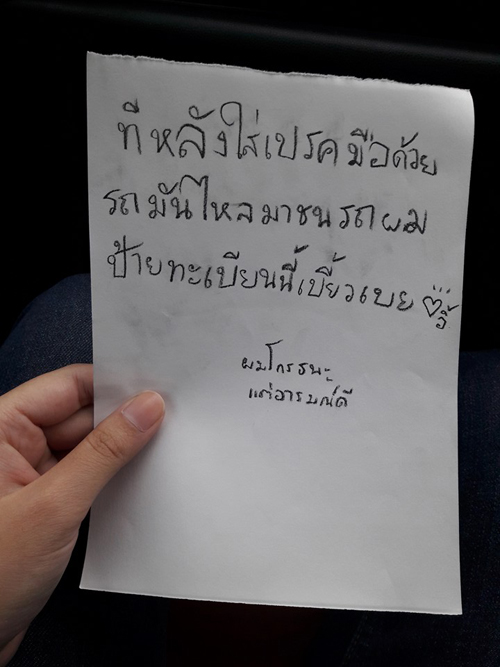 ทีหลังใส่เปรคมือด้วย
รถมันไหลมาชนรถผม
ป้ายทะเบียนนี้เบี้ยวเบย
ผมโกรธนะ
แต่อารมณ์ดี